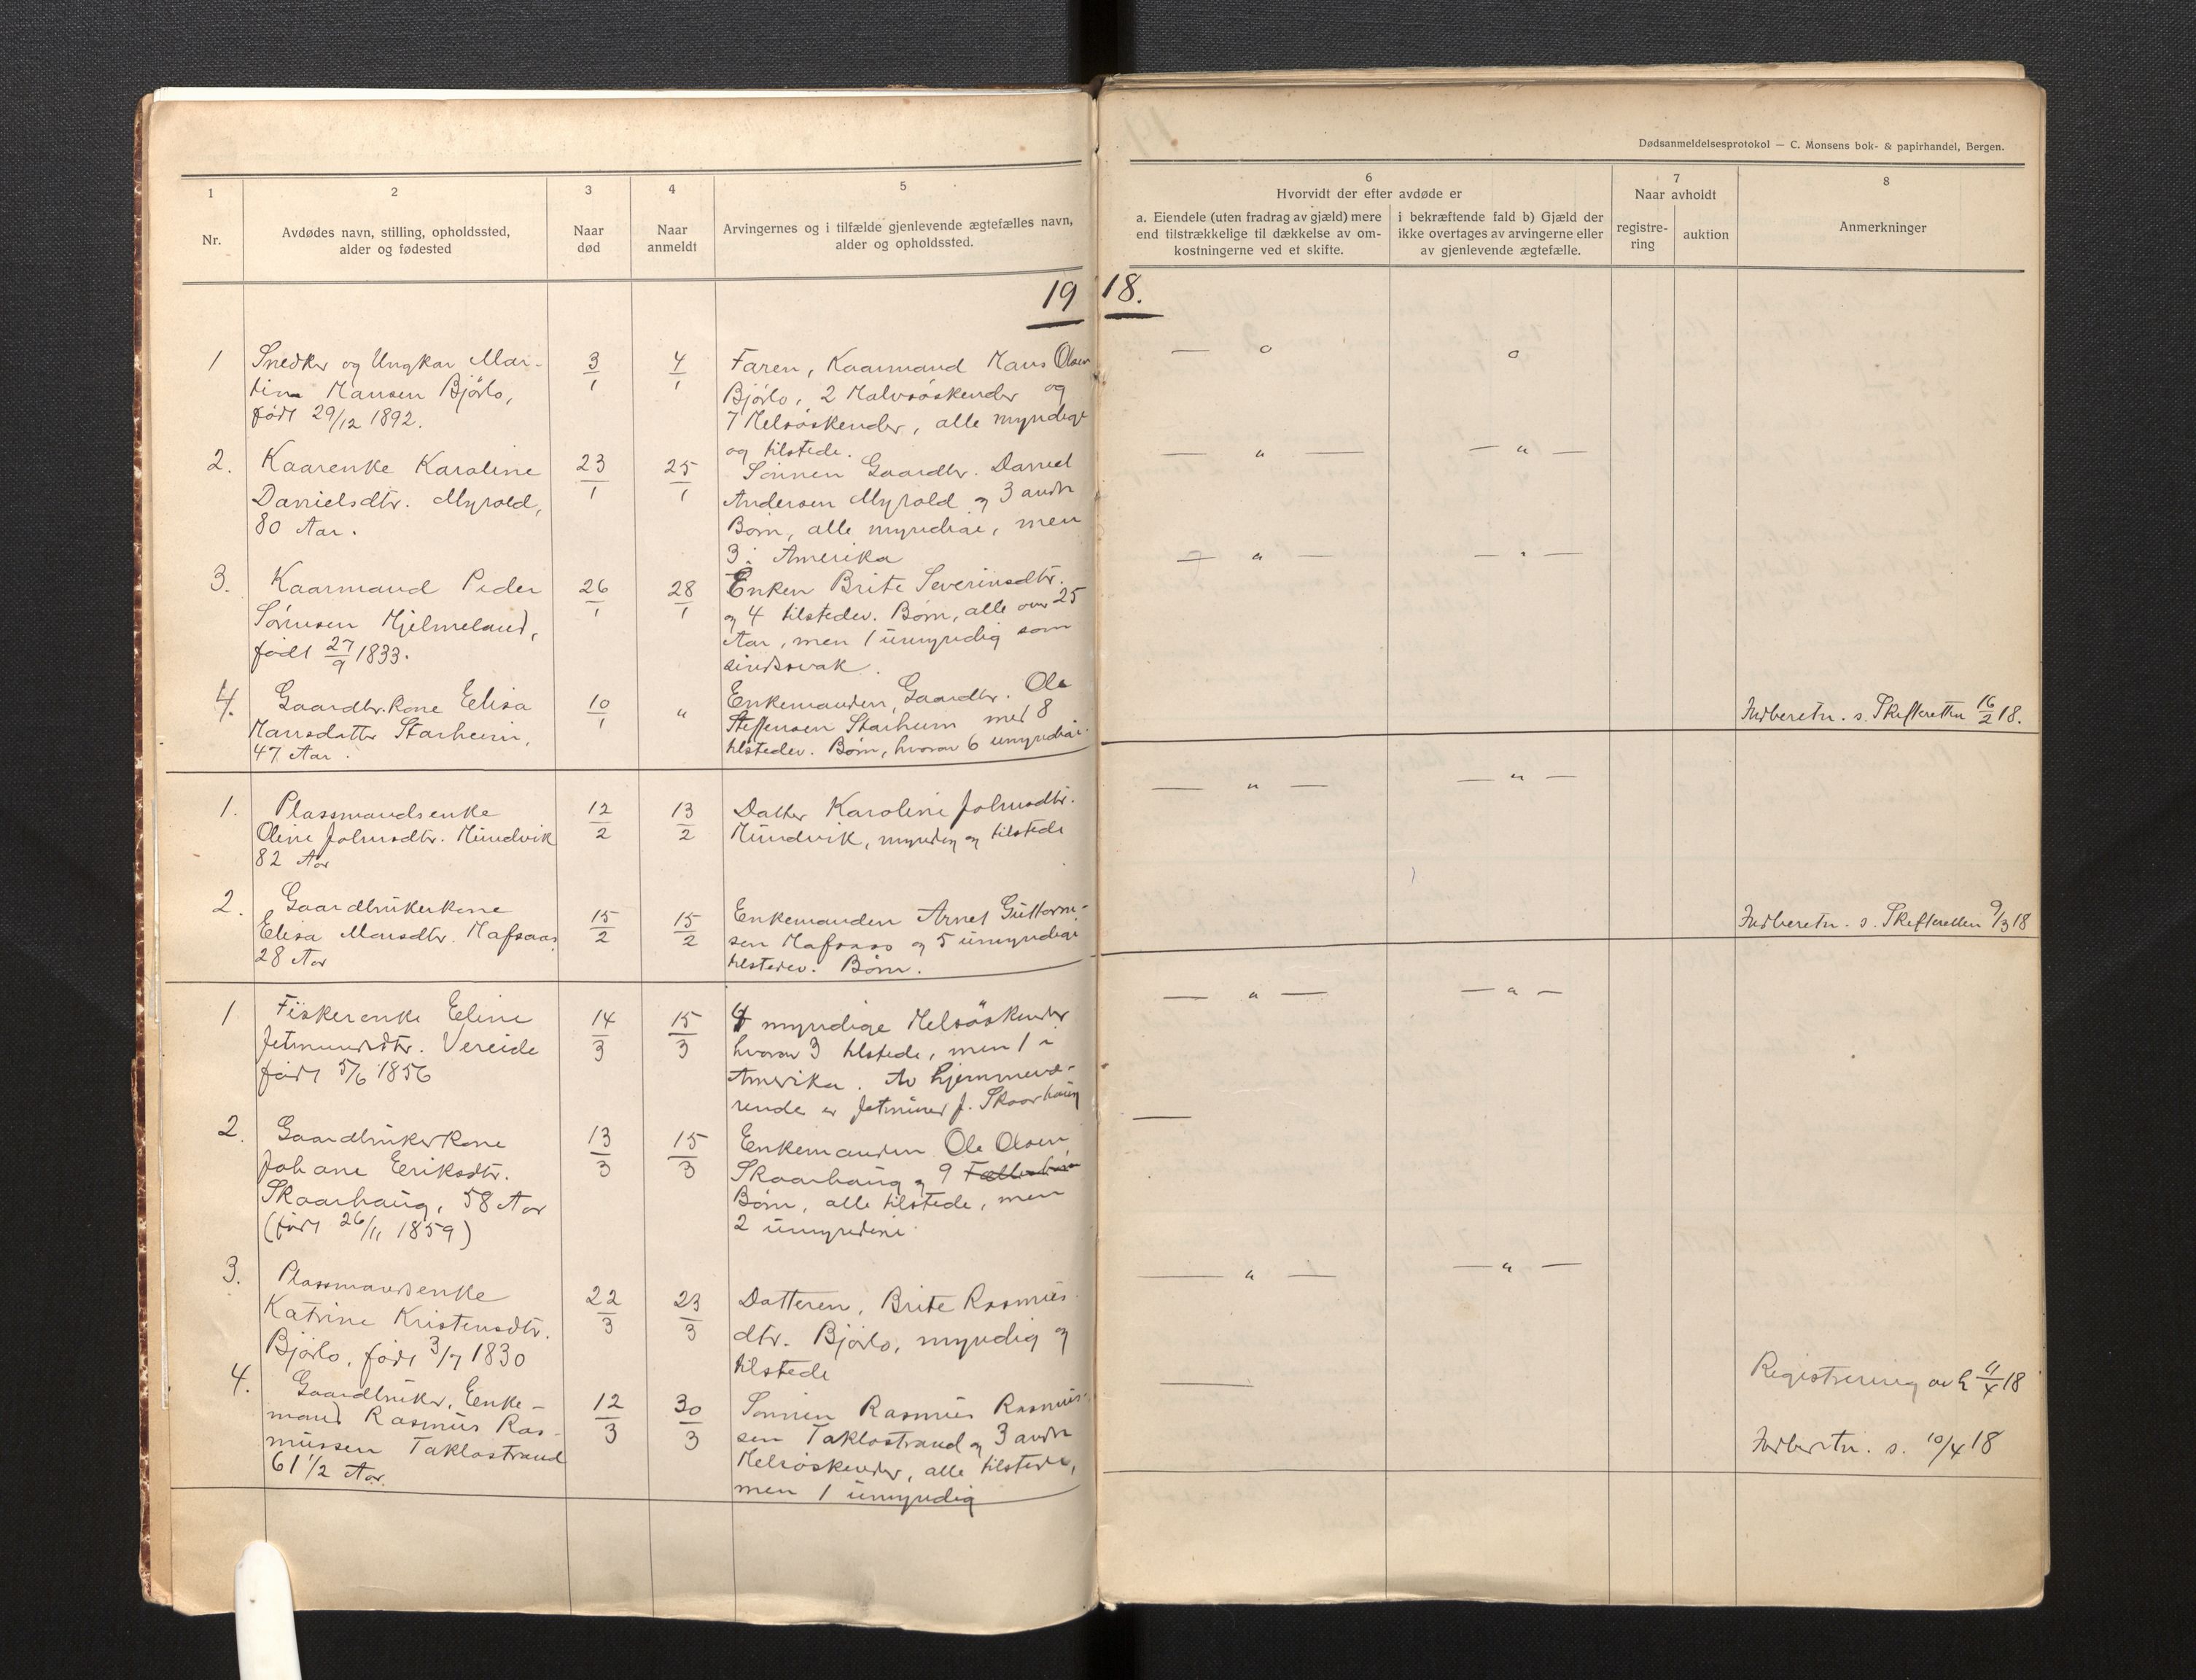 Dødsanmeldelsesprotokol — C. Monsens bok- & papirhandel, Bergen.
1
2
3
4
5
Nr.
Avdødes navn, stilling, opholdssted,
alder og fødested
Naar
død
Naar
anmeldt
Arvingernes og i tilfælde gjenlevende ægtefælles navn,
alder og opholdssted.
6
Hvorvidt der efter avdøde er
a. Eiendele (uten fradrag av gjæld) mere
end tilstrækkelige til dækkelse av om-
kostningerne ved et skifte.
i bekræftende fald b) Gjæld der
ikke overtages av arvingerne eller
av gjenlevende ægtefælle.
7
Naar avholdt
registre-
ring
auktion
8
Anmerkninger
1918.
1
Snedker og Ungkar Mar-
tin Hansen Bjørlo,
født 29/12 1892.
3/1
4/1
Faren, Kaarmand Hans Olsen
Bjørlo, 2 Halvsöskender og
7 Helsöskender, alle myndige
og tilstede.
— o
o
2.
Kaarenke Karoline
Danielsdtr. Myrold,
80 Aar.
23/1
25/1
Sönnen Gaardbr. Daniel
Andersen Myrold og 3 andre
Børn, alle myndige, men
3 i Amerika
— " —
— " —
3.
Kaarmand Peder
Sørensen Hjelmeland,
født 27/9 1833.
26/1
28/1
Enken Brite Severinsdtr.
og 4 tilstedev. Børn, alle over 25
Aar, men 1 umyndig som
sindssvak.
— " —
— " —
4.
Gaardbr.kone Elisa
Hansdatter Starheim,
47 Aar.
10/1
"
Enkemanden, Gaardbr. Ole
Steffensen Starheim med 8
tilstedev. Børn, hvorav 6 umyndige.
Indberetn. s. Skifteretten 16/2 18.
1.
Plassmandsenke
Oline Johnsdtr. Hundvik
82 Aar
12/2
13/2
Datter Karoline Johnsdtr.
Hundvik, myndig og tilstede
— " —
— " —
2.
Gaardbrukerkone
Elisa Monsdtr. Hafsaas
28 Aar
15/2
15/2
Enkemanden Arnet Guttorm-
sen Hafsaas og 5 umyndige
tilstedev. Børn.
Indberetn. s. Skifteretten 9/3 18
1
Fiskerenke Eline
Jetmundsdtr. Vereide
født 5/6 1856
14/3
15/3
4 myndige Helsöskender
hvorav 3 tilstede, men 1 i
Amerika. Av hjemmevæ-
rende er Jetmund J. Skaarhaug
— " —
— " —
2.
Gaardbrukerkone
Johane Eriksdtr.
Skaarhaug, 58 Aar
(født 26/11 1859)
13/3
15/3
Enkemanden Ole Olsen
Skaarhaug og 9
Børn, alle tilstede, men
2 umyndige
—
3.
Plassmandsenke
Katrine Kristensdtr.
Bjørlo, født 3/7 1830
22/3
23/3
Datteren, Brite Rasmus-
dtr. Bjørlo, myndig og
tilstede
— " —
— " —
4.
Gaardbruker, Enke-
mand Rasmus Ras-
mussen Taklostrand
61 1/2 Aar.
12/3
30/3
Sønnen Rasmus Rasmus-
sen Taklostrand og 3 andre
Helsöskender, alle tilstede,
men 1 umyndig
—
Registrering avh 4/4 18
Indberetn. s. 10/4 18